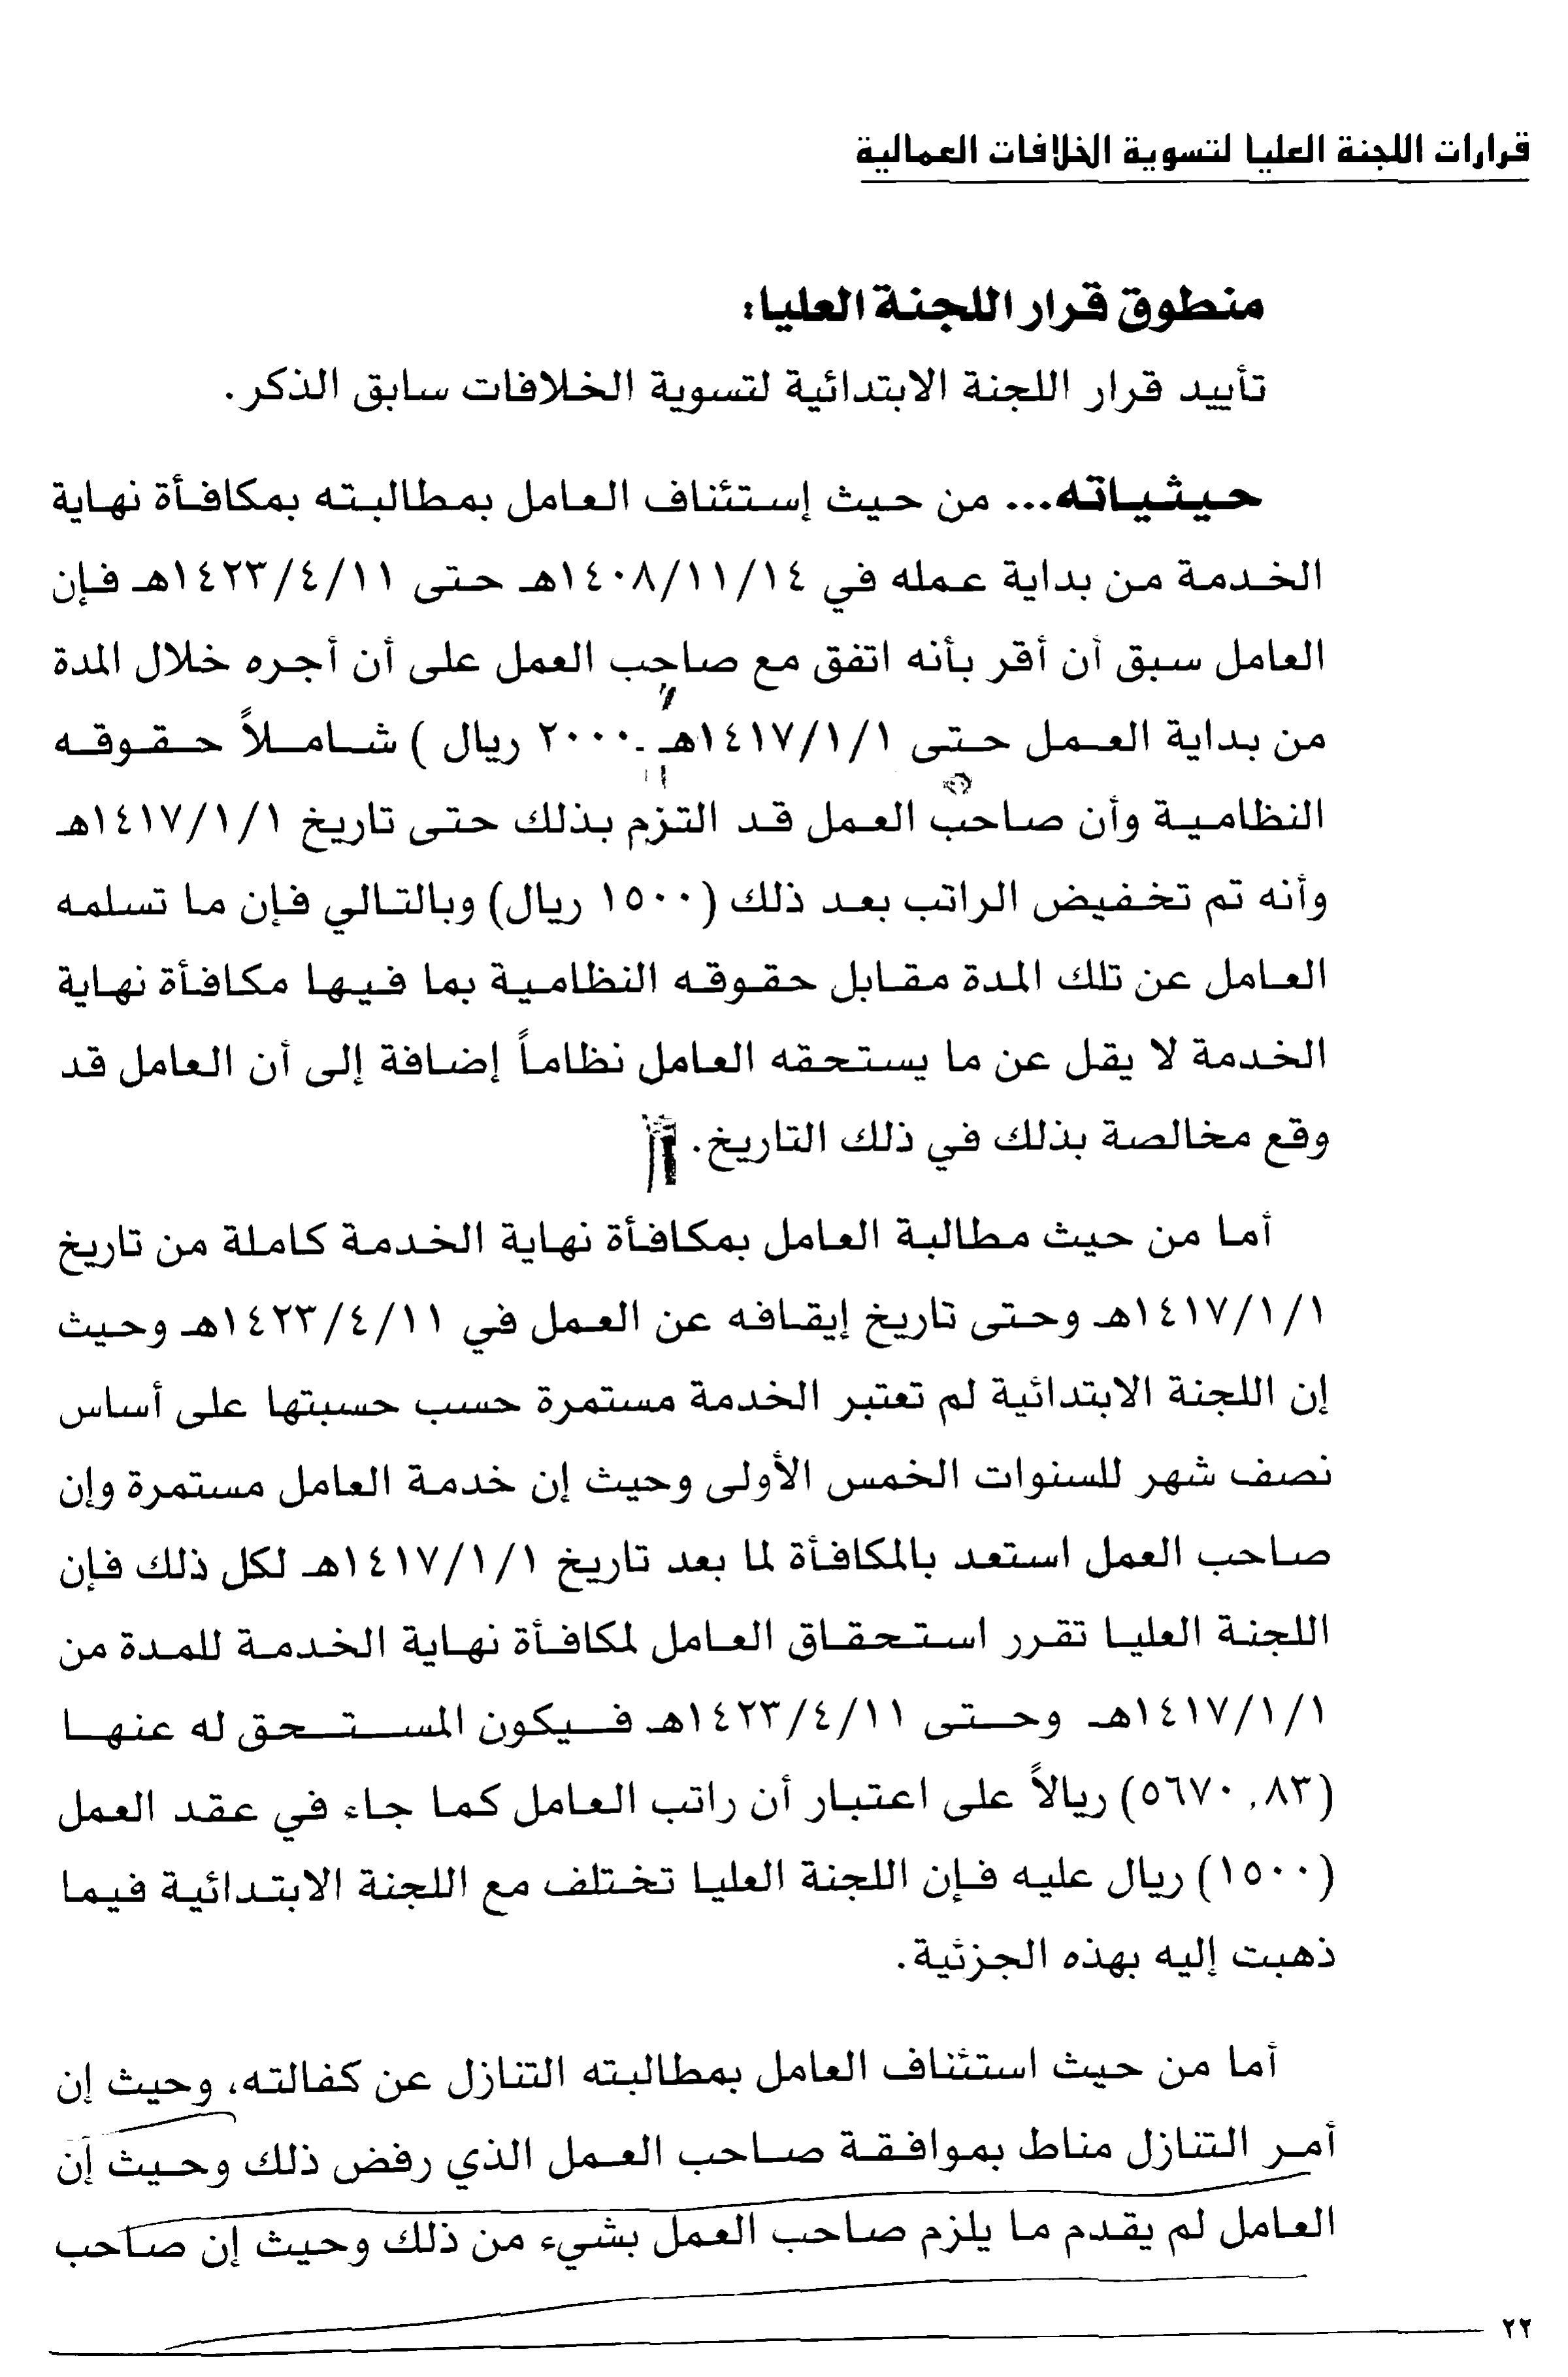 قرارات اللجنة العليا لتسوية الخلافات العمالية
منطوق قرار اللجنة العليا:
تأييد قرار اللجنة الابتدائية لتسوية الخلافات سابق الذكر.
حيثياته... من حيث إستئناف العامل بمطالبته بمكافأة نهاية
الخدمة من بداية عمله في ١٤٠٨/١١/١٤هـ حتى ١٤٢٣/٤/١١هـ فإن
العامل سبق أن أقر بأنه اتفق مع صاحب العمل على أن أجره خلال المدة
من بداية العمل حتى ١٤١٧/١/١هـ ٢٠٠٠ ريال ) شاملاً حقوقه
النظامية وأن صاحب العمل قد التزم بذلك حتى تاريخ ١٤١٧/١/١هـ
وأنه تم تخفيض الراتب بعد ذلك (١٥٠٠ ريال) وبالتالي فإن ما تسلمه
العامل عن تلك المدة مقابل حقوقه النظامية بما فيها مكافأة نهاية
الخدمة لا يقل عن ما يستحقه العامل نظاماً إضافة إلى أن العامل قد
وقع مخالصة بذلك في ذلك التاريخ.
أما من حيث مطالبة العامل بمكافأة نهاية الخدمة كاملة من تاريخ
١٤١٧/١/١هـ وحتى تاريخ إيقافه عن العمل في ١٤٢٣/٤/١١هـ وحيث
إن اللجنة الابتدائية لم تعتبر الخدمة مستمرة حسب حسبتها على أساس
نصف شهر للسنوات الخمس الأولى وحيث إن خدمة العامل مستمرة وإن
صاحب العمل استعد بالمكافأة لما بعد تاريخ ١٤١٧/١/١هـ لكل ذلك فإن
اللجنة العليا تقرر استحقاق العامل لمكافأة نهاية الخدمة للمدة من
١٤١٧/١/١هـ وحتى ١٤٢٣/٤/١١هـ فيكون المستحق له عنها
(٥٦٧٠,٨٣) ريالاً على اعتبار أن راتب العامل كما جاء في عقد العمل
(١٥٠٠) ريال عليه فإن اللجنة العليا تختلف مع اللجنة الابتدائية فيما
ذهبت إليه بهذه الجزئية.
أما من حيث استئناف العامل بمطالبته التنازل عن كفالته، وحيث إن
أمر التنازل مناط بموافقة صاحب العمل الذي رفض ذلك وحيث إن
العامل لم يقدم ما يلزم صاحب العمل بشيء من ذلك وحيث إن صاحب
٢٢